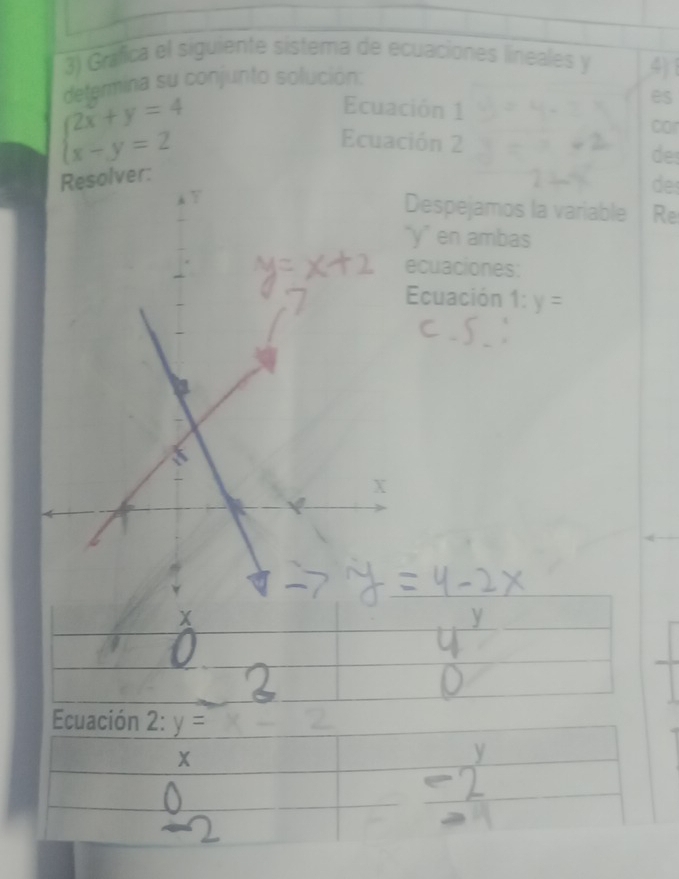 3) Grafica el siguiente sistema de ecuaciones lineales y
determina su conjunto solución:
2x + y = 4 Ecuación 1
x - y = 2 Ecuación 2
Resolver:
Y
Despejamos la variable
"y" en ambas
ecuaciones:
Ecuación 1: y =
C.S.:
y = x + 2
X
=> y = 4 - 2x
x y
0 4
2 0
Ecuación 2: y = x - 2
x y
0 -2
-2 -4
4)
es
con
de
Re